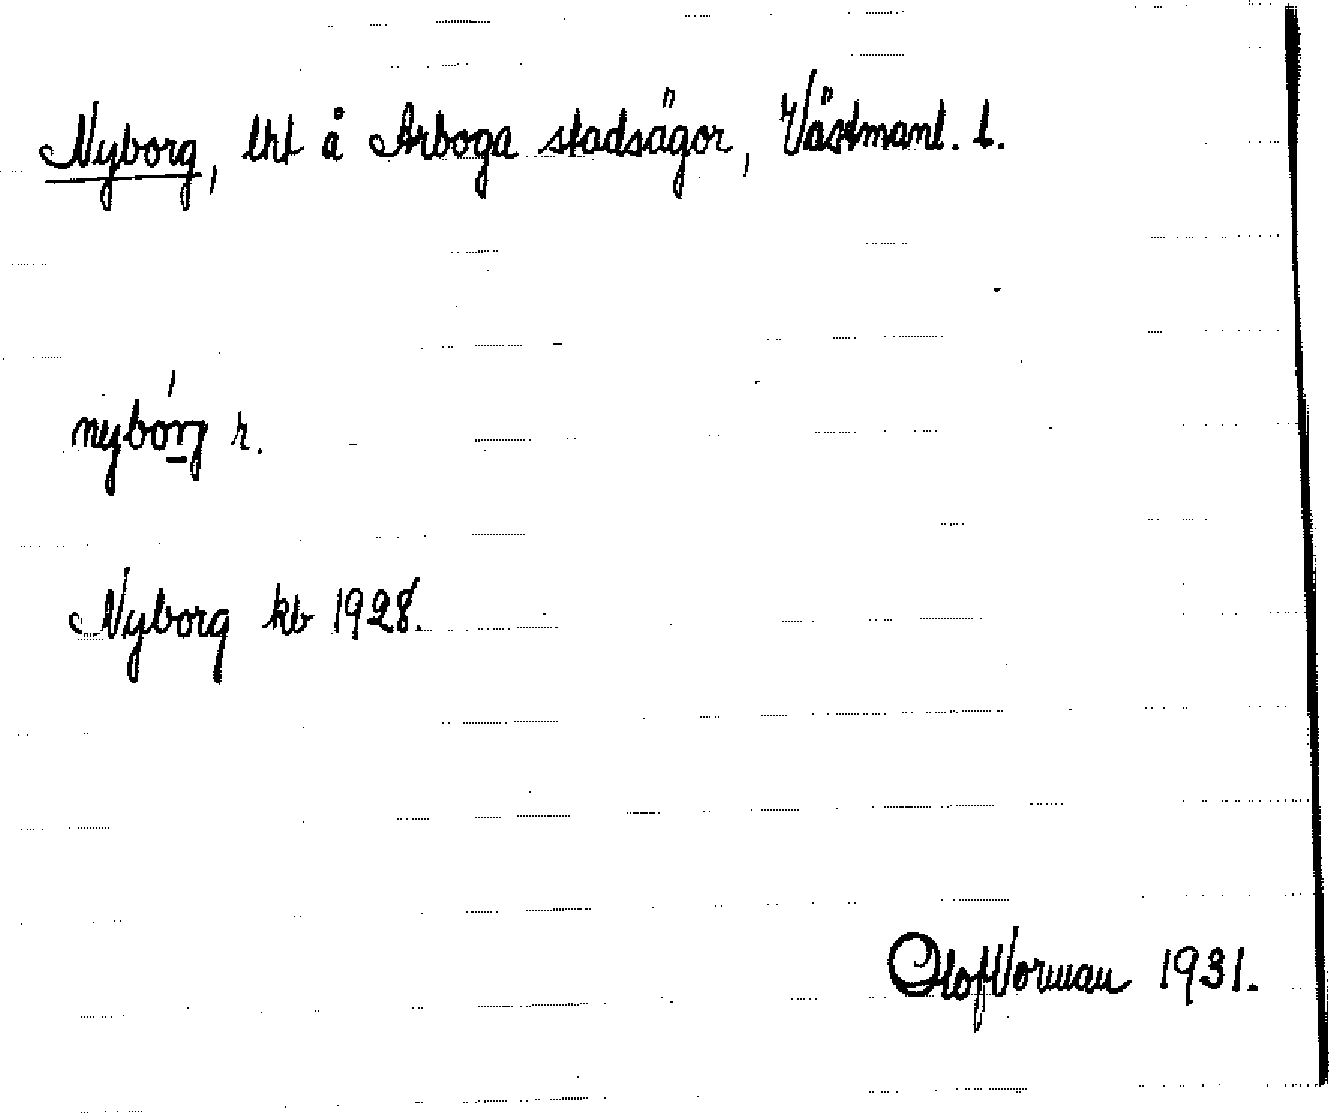 Nyborg, lht å Arboga stadsägor, Västmanl. l.
nybórg r.
Nyborg kb 1928.
Olof Vorman 1931.